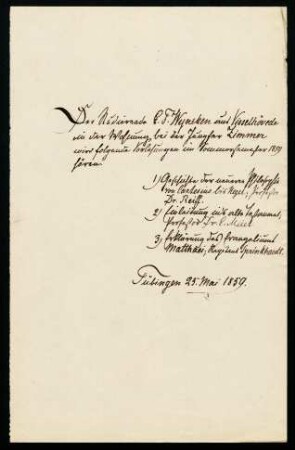 Der Studirende E. F. Wyneken aus Visselhövede
in der Wohnung bei der Jungfer Zimmer
wird folgende Vorlesungen im Sommersemester 1859
hören:
1) Geschichte der neueren Philosophie
von Cartesius bis Hegel, Professor
Dr. Reiff.
2) Einleitung ins alte Testament,
Professor Dr.
3) Erklärung des Evangeliums
Matthäi, Repetent
Tübingen 25. Mai 1859.